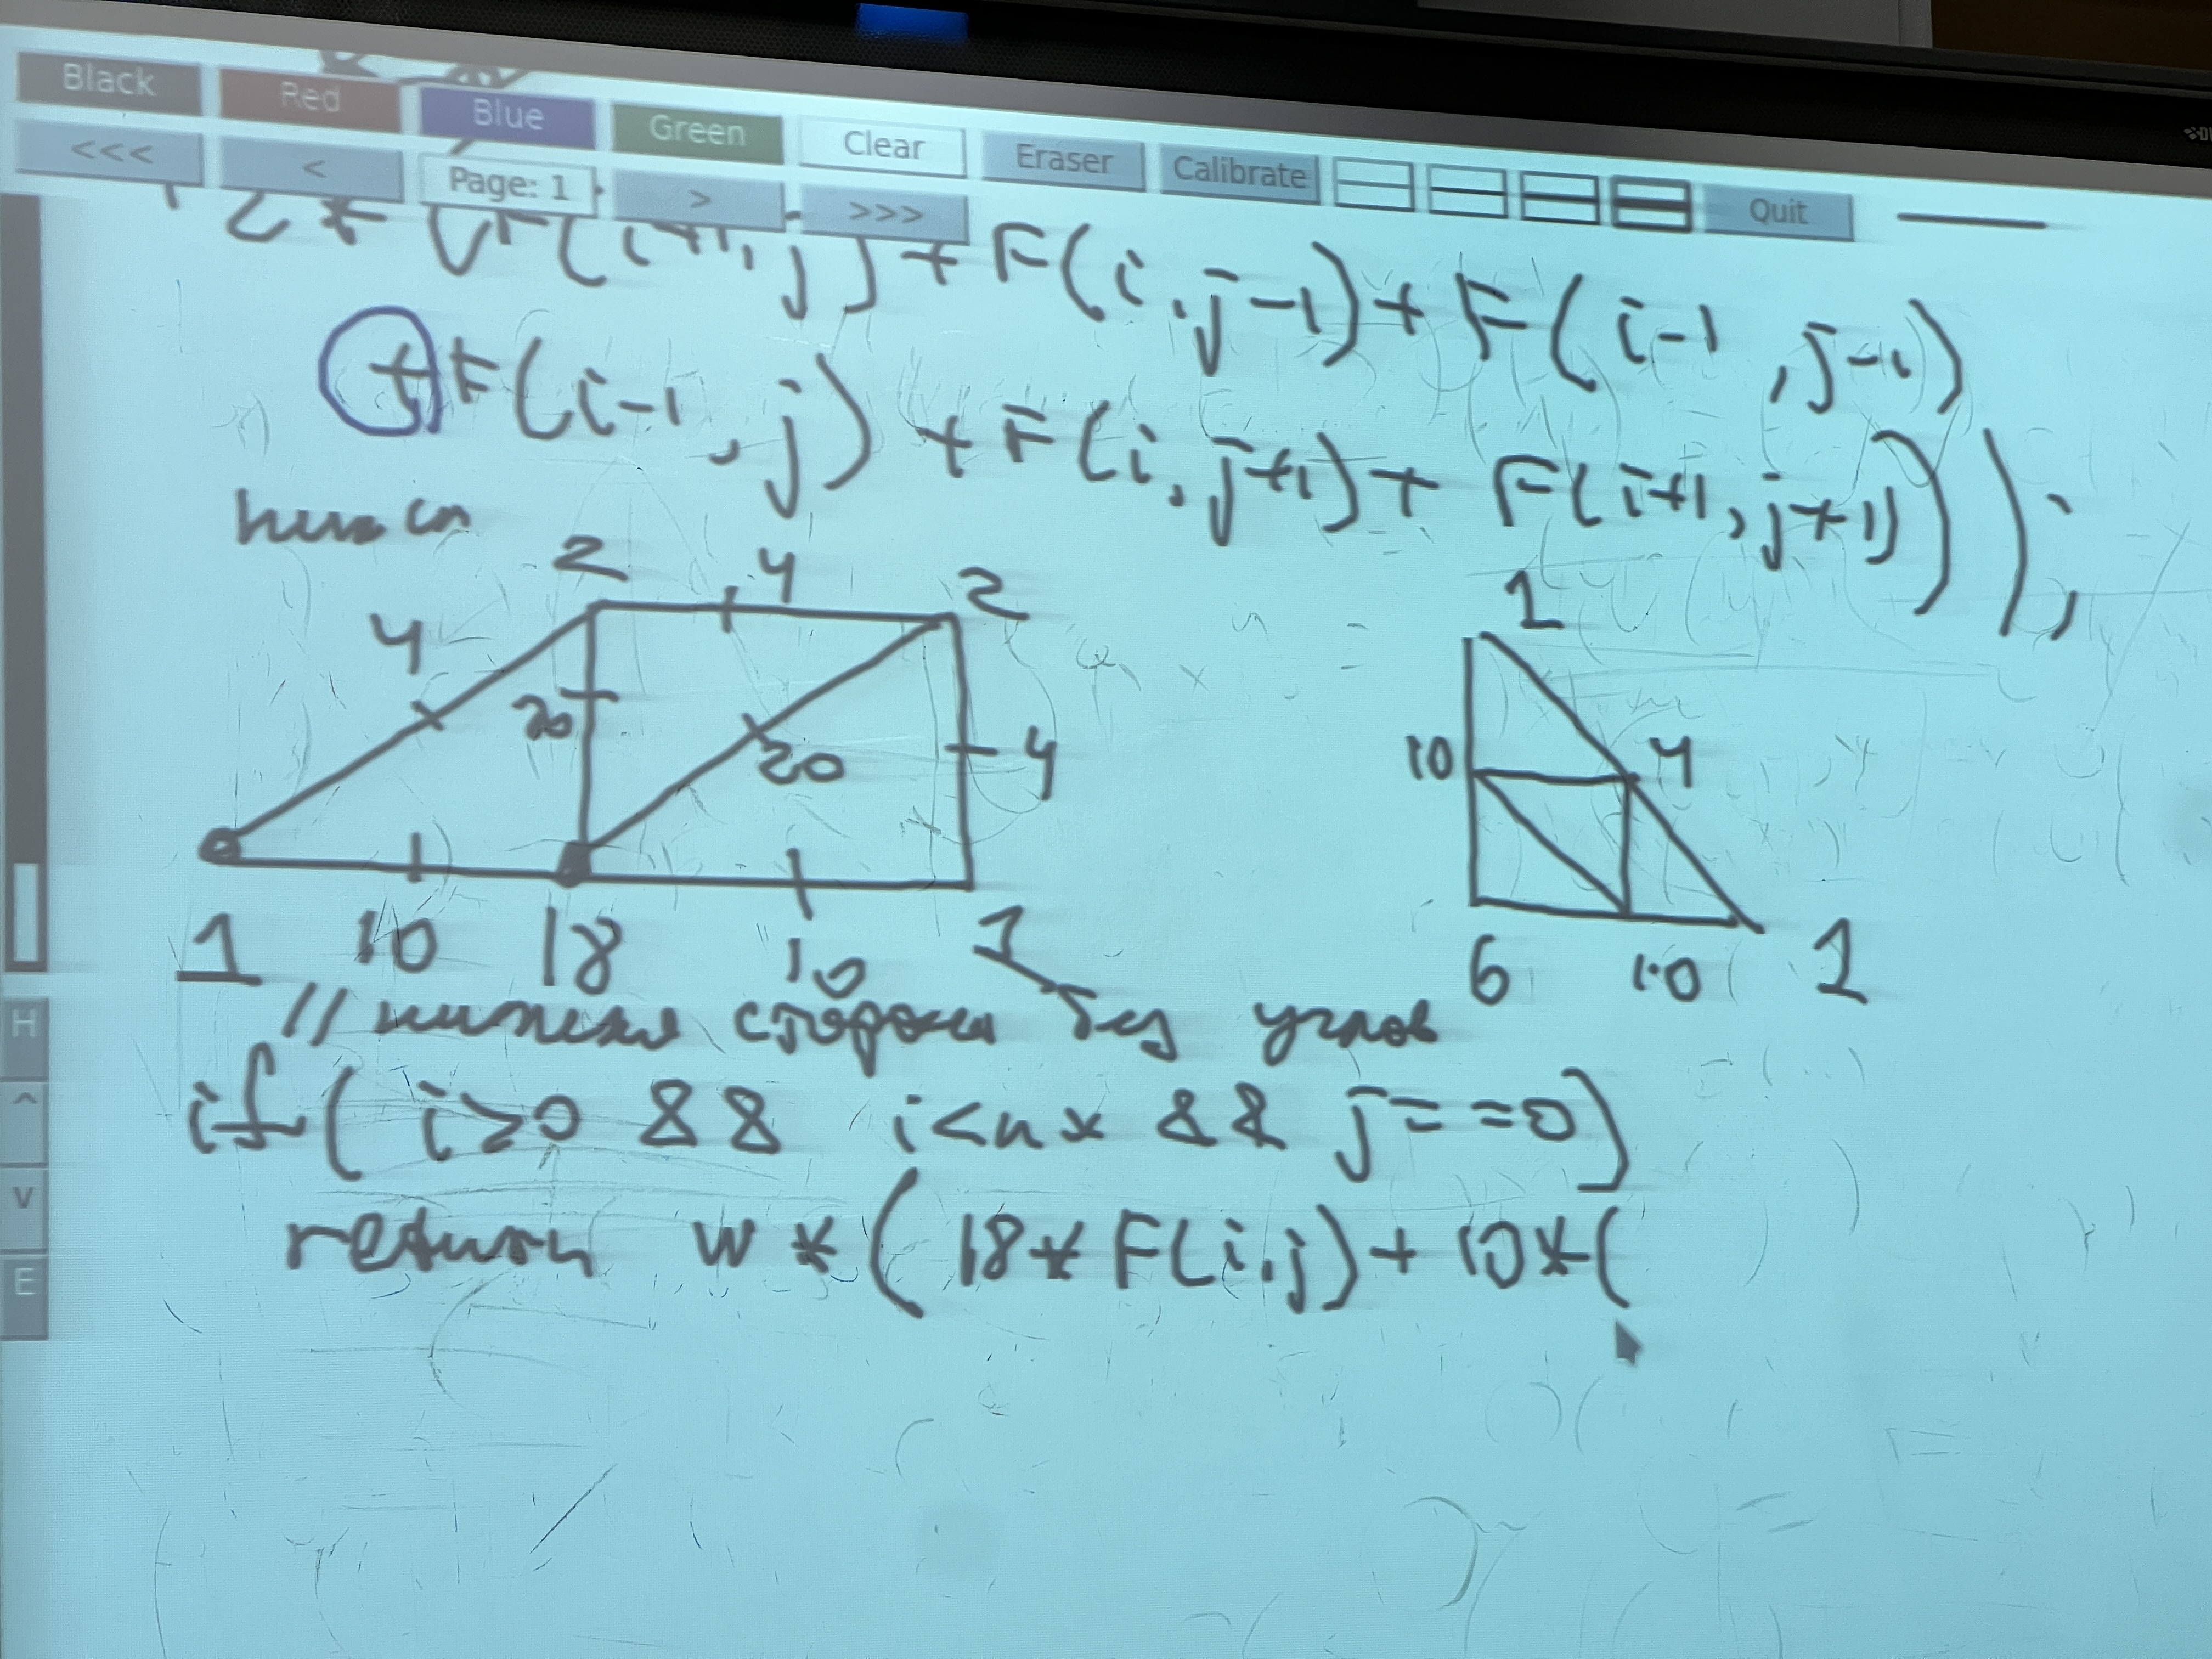 Black Red Blue Green Clear Eraser Calibrate Quit
<<< < Page: 1 > >>>
2 * (F(i+1, j) + F(i, j-1) + F(i-1, j-1)
+ F(i-1, j) + F(i, j+1) + F(i+1, j+1)));
2 4 2
4 20 20 4
1 10 18 10 1
1
10 4
6 10 1
// нижняя сторона без углов
if( i>0 && i<nx && j==0)
return w*(18*F(i,j)+10*(
H
^
v
E